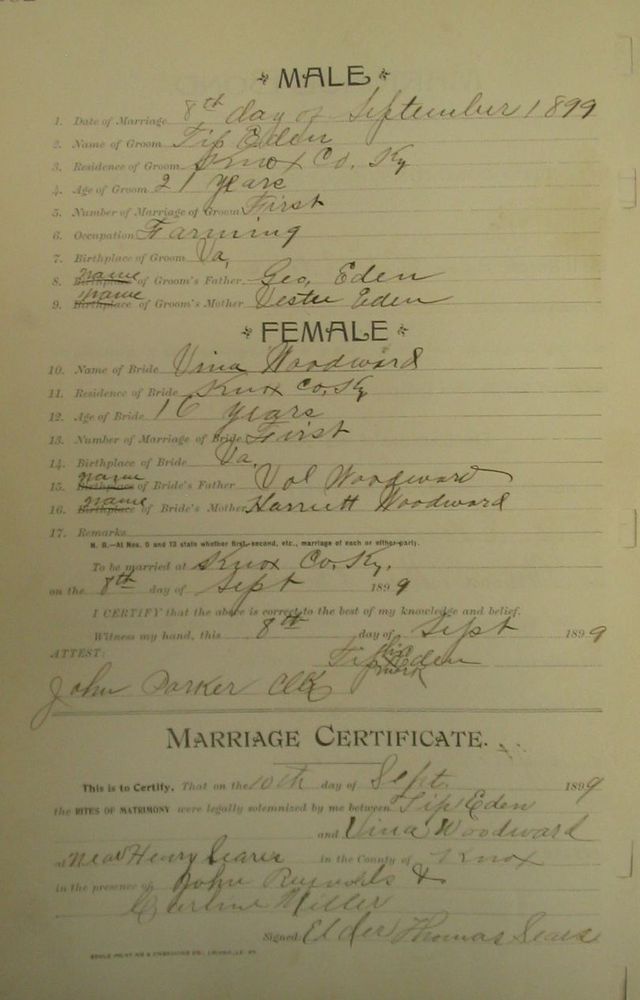 MALE
1. Date of Marriage 8th day of September 1899
2. Name of Groom Tip Eden
3. Residence of Groom Knox Co. Ky
4. Age of Groom 21 years
5. Number of Marriage of Groom First
6. Occupation Farming
7. Birthplace of Groom Va.
8. Birthplace name of Groom's Father Geo. Eden
9. Birthplace name of Groom's Mother Eden
FEMALE
10. Name of Bride Vina Woodward
11. Residence of Bride Knox Co. Ky
12. Age of Bride 16 years
13. Number of Marriage of Bride First
14. Birthplace of Bride Va.
15. Birthplace name of Bride's Father Vol Woodward
16. Birthplace name of Bride's Mother Harriett Woodward
17. Remarks
N. B.—At Nos. 5 and 13 state whether first, second, etc., marriage of each or either party.
To be married at Knox Co. Ky.
on the 8th day of Sept 1899
I CERTIFY that the above is correct to the best of my knowledge and belief.
Witness my hand, this 8th day of Sept 1899
ATTEST: Tip his x mark Eden
John Parker Clk
MARRIAGE CERTIFICATE.
This is to Certify, That on the 10th day of Sept. 1899
the RITES OF MATRIMONY were legally solemnized by me between Tip Eden
and Vina Woodward
at near Henry in the County of Knox
in the presence of John Reynolds &
Miller
Signed Elder Thomas Sears